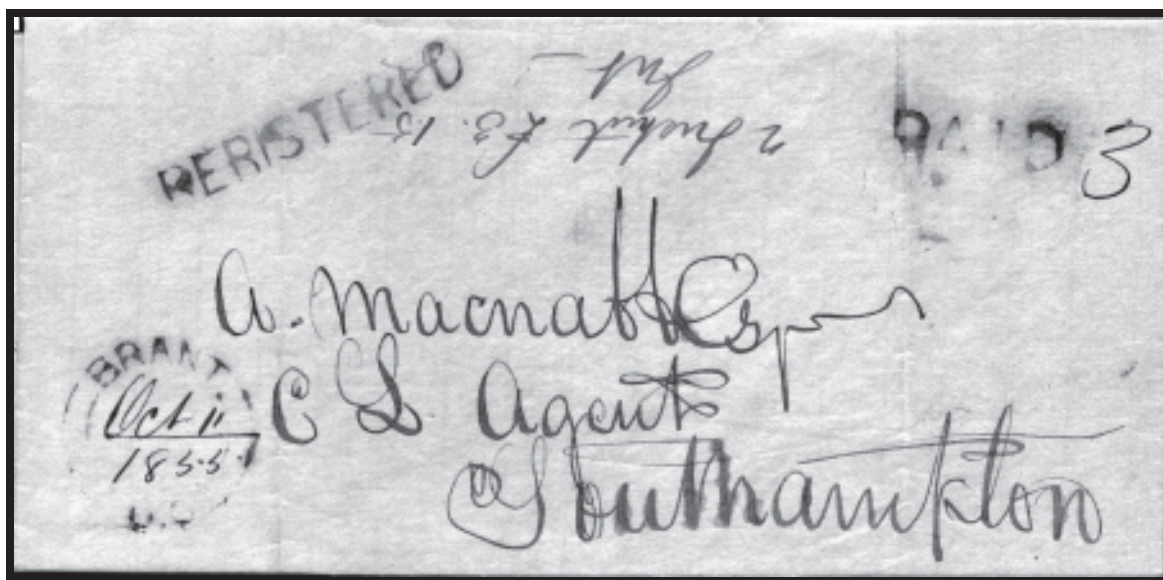 RERISTERED
PAID 3
£3.15
A. Macnabb Esqr
C L Agent
Southampton
BRANT
Oct 11
1855
U.C